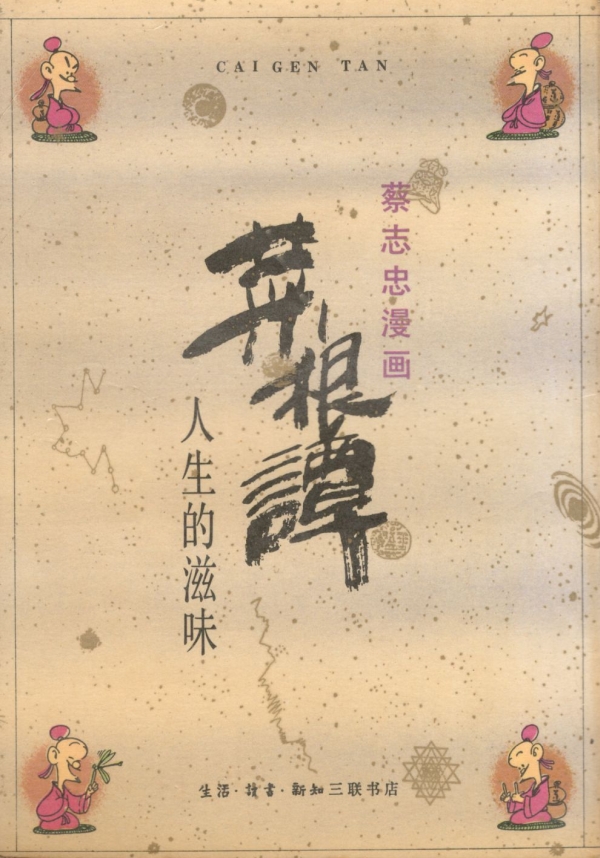 CAI GEN TAN
蔡志忠漫画
菜根譚
人生的滋味
生活·讀書·新知三联书店